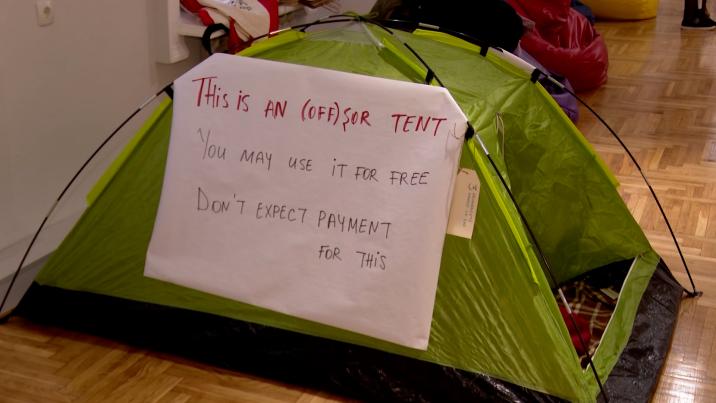 THis is AN (OFF)SOR TENT
YOU MAY USE iT FOR FREE
DON'T EXPECT PAYMENT
FOR THiS
3